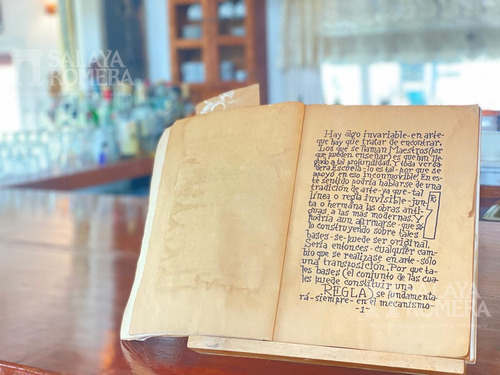 SALAYA
ROMERA
Hay algo invariable-en arte-
que hay que tratar de encontrar.
Los que se llaman Maestros (por
que pueden enseñar) es que han lle-
gado a tal profundidad. Y toda verda
dera Escuela-lo es tal-por que se
apoyó en eso inconmovible. En es-
te sentido podría hablarse de una
tradición de arte-ya que-tal
línea o regla invisible-jun-
ta o hermana las obras anti-
guas, a las más modernas. Y
podría aun afirmarse-que só
lo construyendo sobre tales
bases-se puede ser original.
Sería entonces-cualquier cam-
bio que se realizase en arte-sólo
una transposición. Por que ta-
les bases (el conjunto de las cua-
les puede constituir una
REGLA), se fundamenta
rá-siempre-en el mecanismo-
-1-
SALAYA
ROMERA